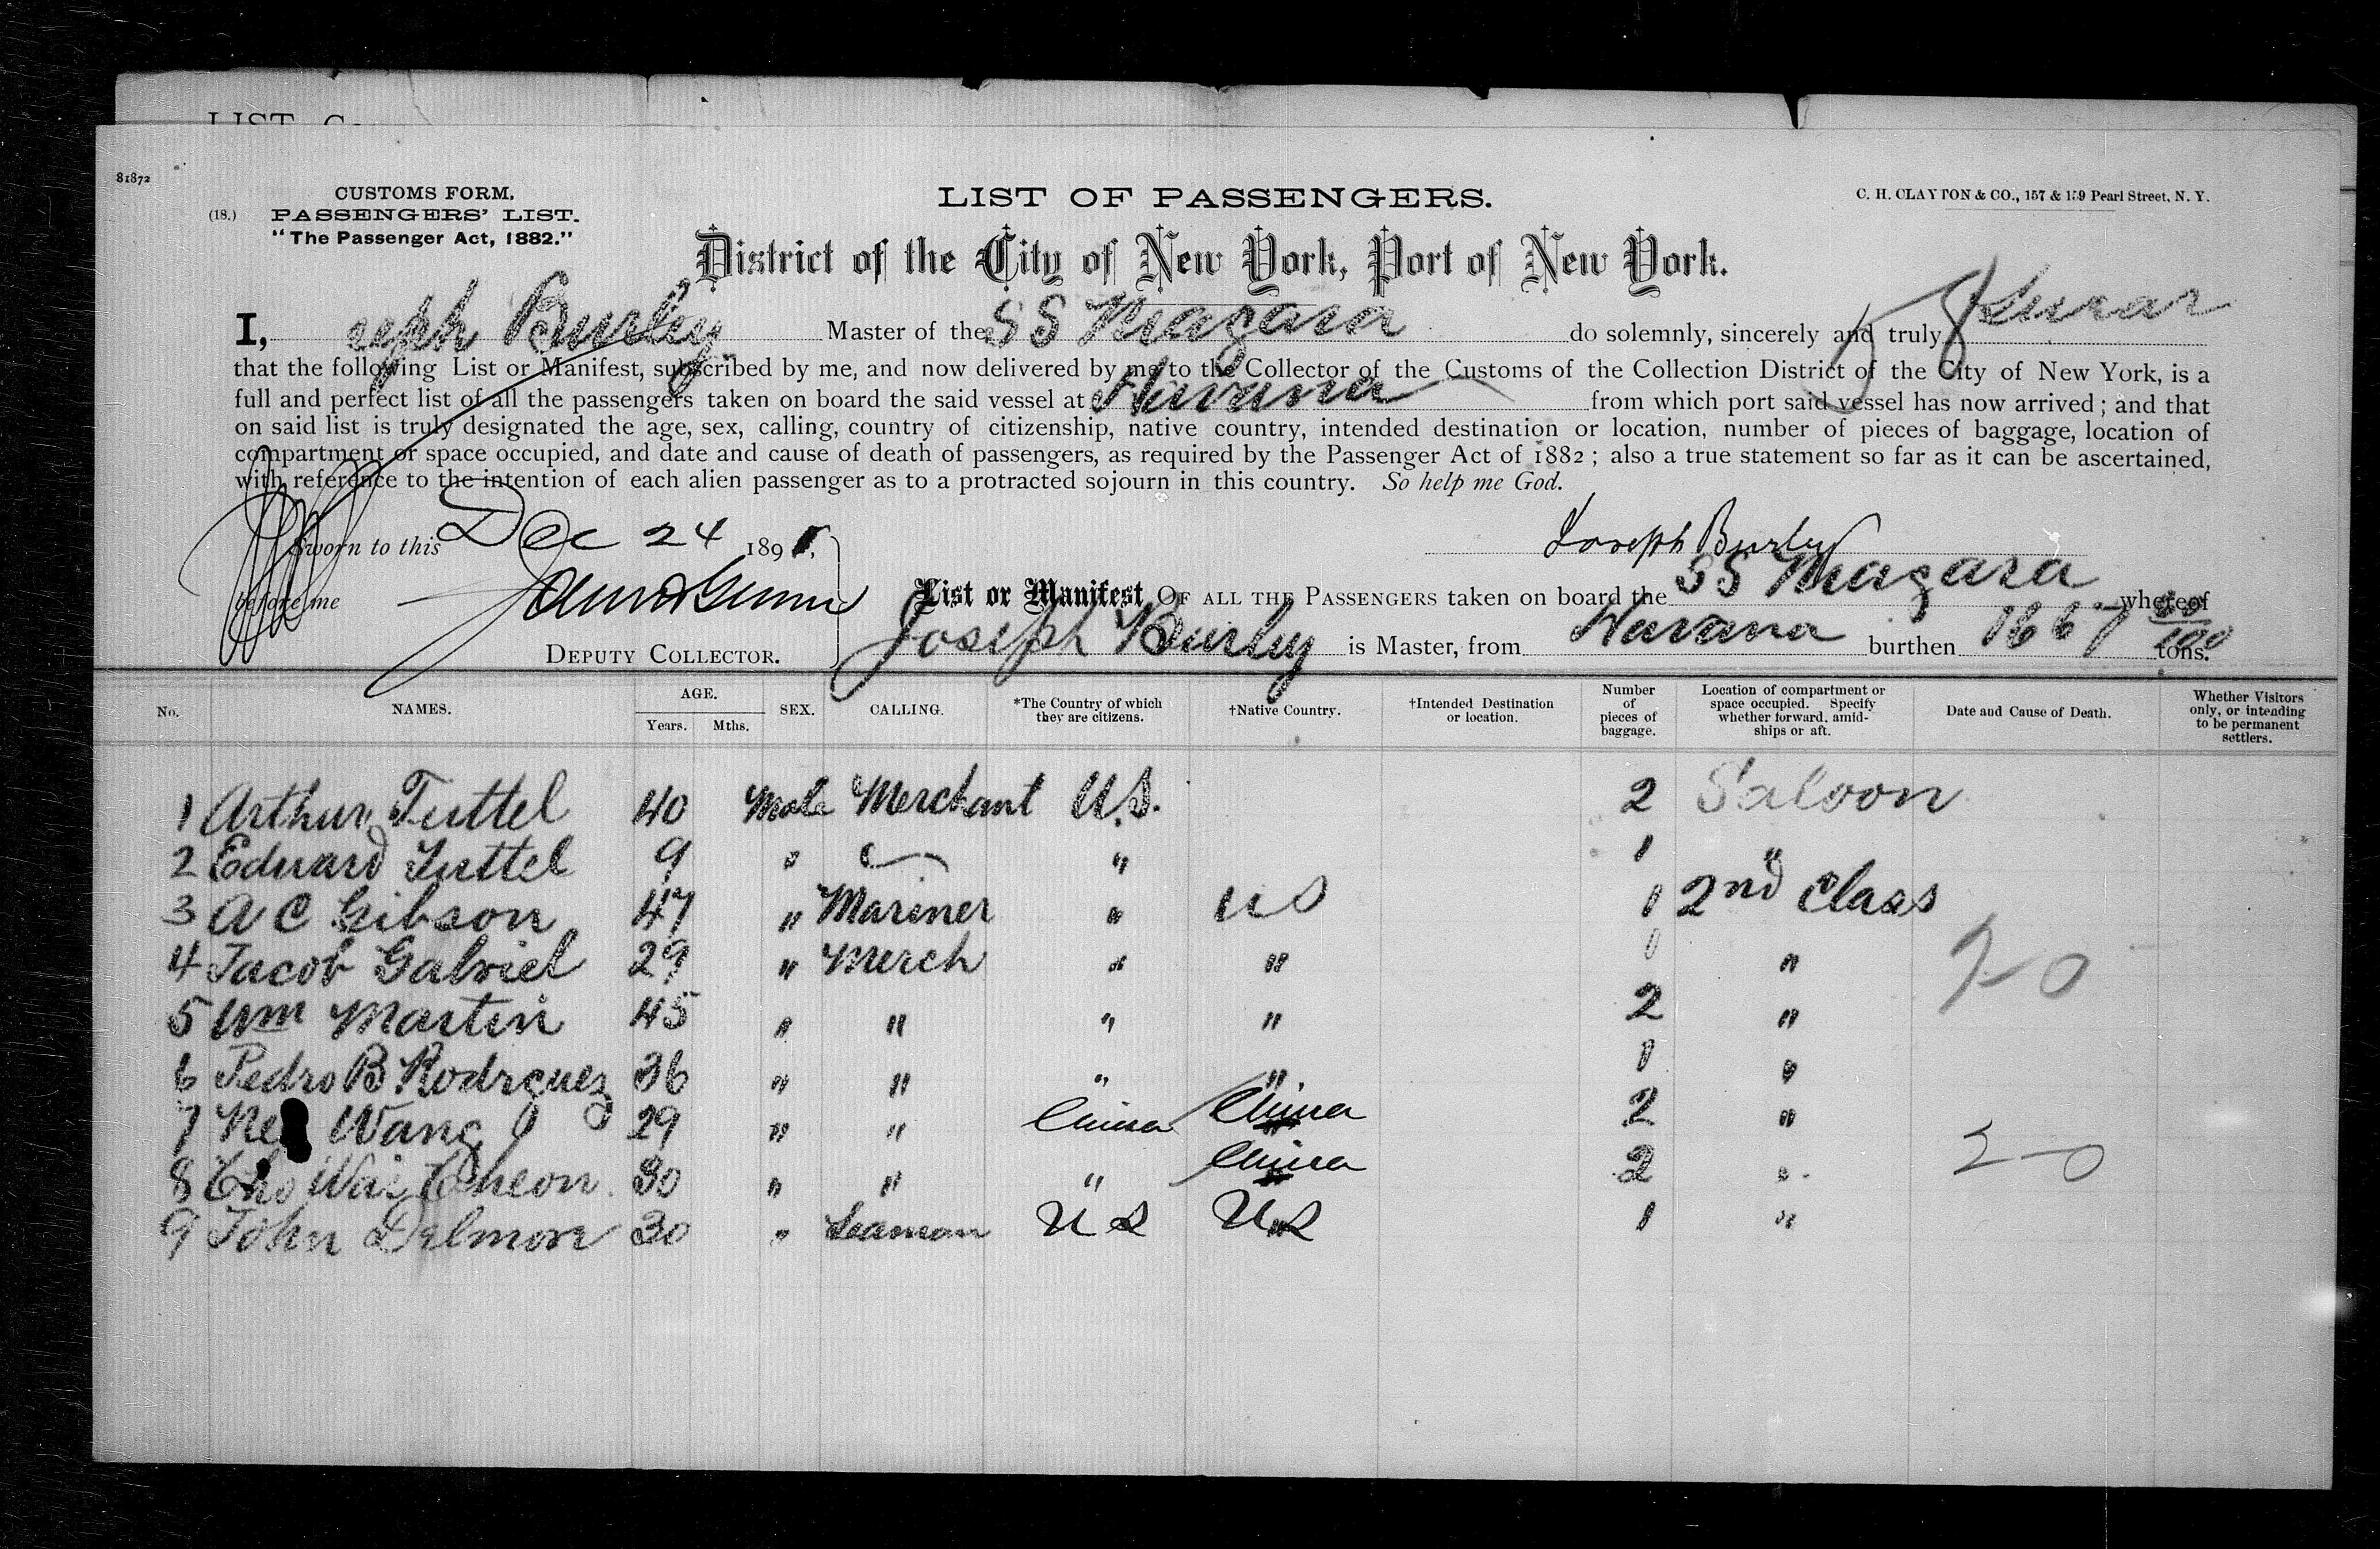 LIST
81872
CUSTOMS FORM.
(18.) PASSENGERS' LIST.
"The Passenger Act, 1882."
LIST OF PASSENGERS.
C. H. CLAYTON & CO., 157 & 159 Pearl Street, N. Y.
District of the City of New York, Port of New York.
I, seph Burley Master of the SS Niagara do solemnly, sincerely and truly swear
that the following List or Manifest, subscribed by me, and now delivered by me to the Collector of the Customs of the Collection District of the City of New York, is a
full and perfect list of all the passengers taken on board the said vessel at Havana from which port said vessel has now arrived; and that
on said list is truly designated the age, sex, calling, country of citizenship, native country, intended destination or location, number of pieces of baggage, location of
compartment or space occupied, and date and cause of death of passengers, as required by the Passenger Act of 1882; also a true statement so far as it can be ascertained,
with reference to the intention of each alien passenger as to a protracted sojourn in this country. So help me God.
Sworn to this Dec 24 1891,
Joseph Burley
before me
DEPUTY COLLECTOR.
List or Manifest OF ALL THE PASSENGERS taken on board the SS Niagara whereof
Joseph Burley is Master, from Havana burthen 1667 tons.
No. NAMES. AGE. Years. Mths. SEX. CALLING. *The Country of which they are citizens. †Native Country. †Intended Destination or location. Number of pieces of baggage. Location of compartment or space occupied. Specify whether forward, amid-ships or aft. Date and Cause of Death. Whether Visitors only, or intending to be permanent settlers.
1 Arthur Tuttel 40 Male Merchant U.S. 2 Saloon
2 Edward Tuttel 9 " " 1 "
3 A C Gibson 47 " Mariner " U S 1 2nd Class
4 Jacob Gabriel 29 " Merch " " 1 "
5 Wm Martin 45 " " " " 2 "
6 Pedro B Rodrguez 36 " " " " 1 "
7 Wang 29 " " China China 2 "
8 Cho Wai Cheon 30 " " " China 2 "
9 John Delmore 30 " Seaman U S U S 1 "